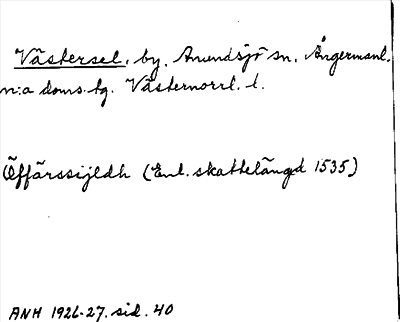 Västersel, by, Anundsjö sn, Ångermanl.
n:a doms.-tg. Västernorrl. l.
Öffärssijeldh (Enl. skattelängd 1535)
ANH 1926-27. sid. 40